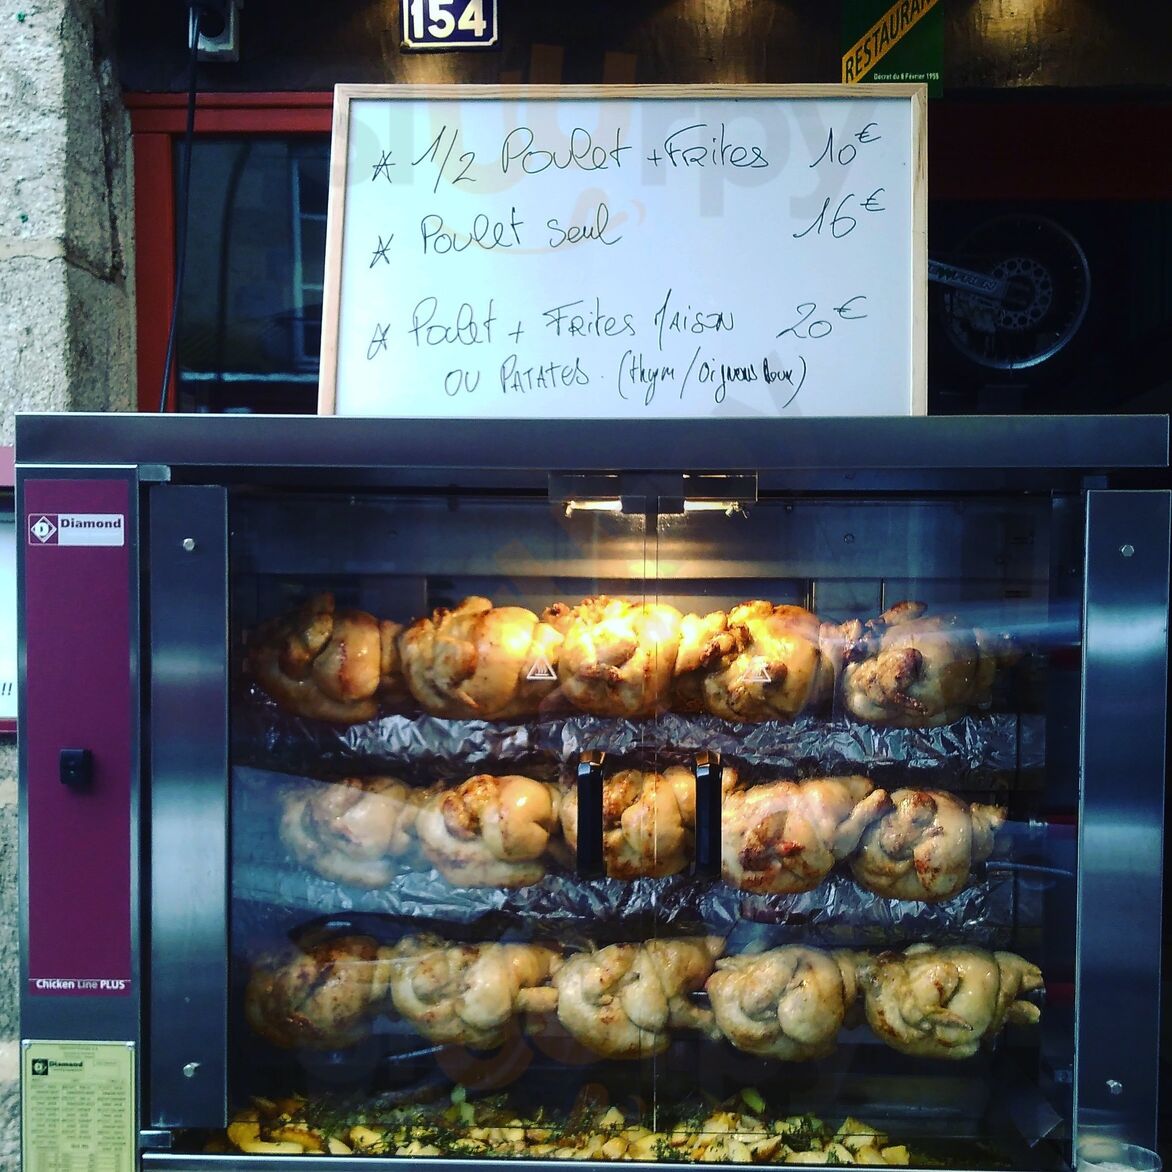 154
RESTAURANT
Décret du 8 Février 1955
1/2 Poulet + Frites 10€
Poulet seul 16€
Poulet + Frites Maison 20€
OU PATATES. (thym/oignons doux)
Diamond
Chicken Line PLUS
Diamond
!!
sluurpy